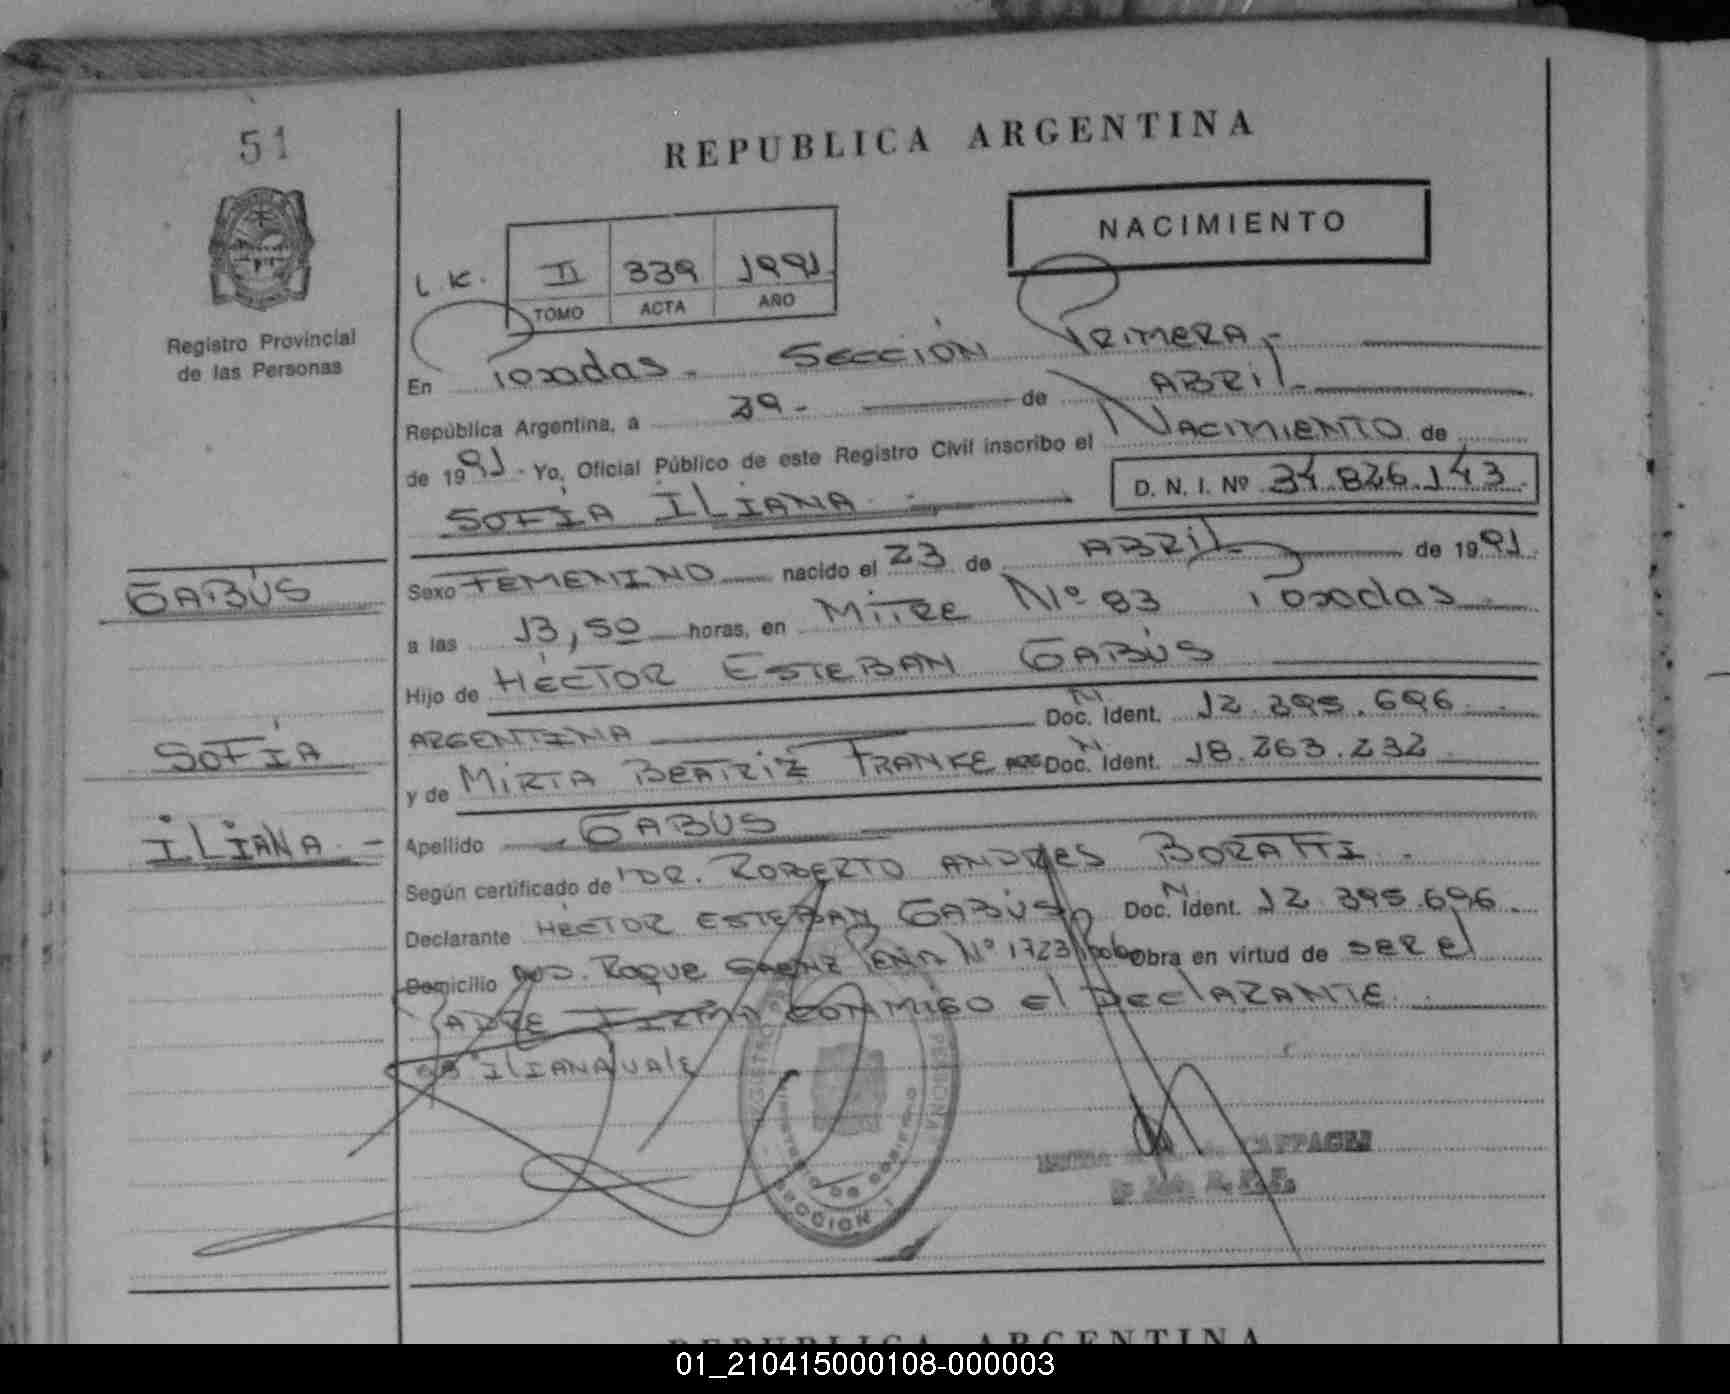 51
REPUBLICA ARGENTINA
NACIMIENTO
Registro Provincial
de las Personas
L. K. II 339 1991
TOMO ACTA AÑO
En Posadas - SECCIÓN PRIMERA -
República Argentina, a 29 - de ABRIL -
de 1991 - Yo, Oficial Público de este Registro Civil inscribo el NACIMIENTO de
SOFÍA ILIANA - D. N. I. Nº 34.826.143
GABÚS
SOFÍA
ILIANA -
Sexo FEMENINO nacido el 23 de ABRIL de 1991
a las 13,50 horas, en MITRE Nº 83 Posadas
Hijo de HÉCTOR ESTEBAN GABÚS
ARGENTINA Doc. N. Ident. 12.395.696
y de MIRTA BEATRIZ FRANKE ARG Doc. N. Ident. 18.263.232
Apellido GABÚS
Según certificado de DR. ROBERTO ANDRES BORATTI -
Declarante HÉCTOR ESTEBAN GABÚS Doc. N. Ident. 12.395.696
Domicilio ROQUE SAENZ PEÑA Nº 1723 Obra en virtud de SER El
PADRE FIRMA CONMIGO El DEClARANTE
ILIANA VALE
SECCION 1
REPUBLICA ARGENTINA
01_210415000108-000003